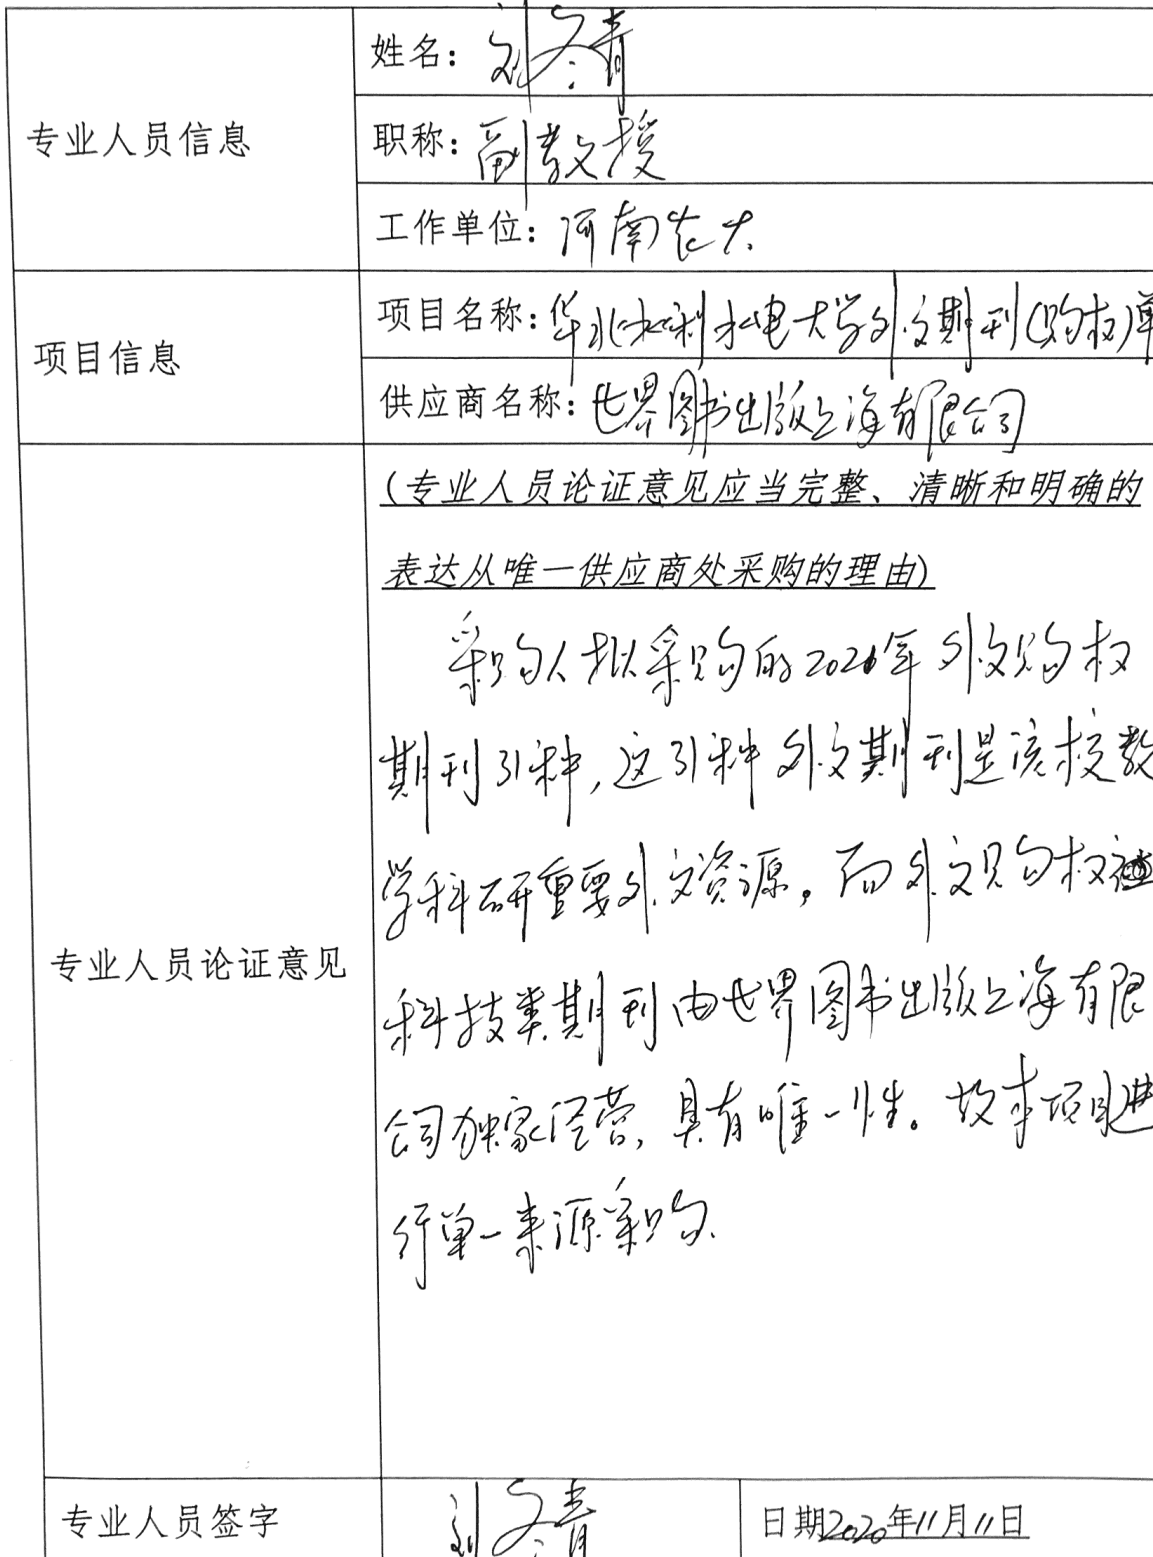 专业人员信息
姓名：刘冬青
职称：副教授
工作单位：河南农大
项目信息
项目名称：华北水利水电大学外文期刊（购权）单
供应商名称：世界图书出版上海有限公司
专业人员论证意见
（专业人员论证意见应当完整、清晰和明确的
表达从唯一供应商处采购的理由）
采购人拟采购的2021年外文购权
期刊31种，这31种外文期刊是该校教
学科研重要外文资源。而外文购权
科技类期刊由世界图书出版上海有限
公司独家经营，具有唯一性。故本项目进
行单一来源采购.
专业人员签字
刘冬青
日期2020年11月11日